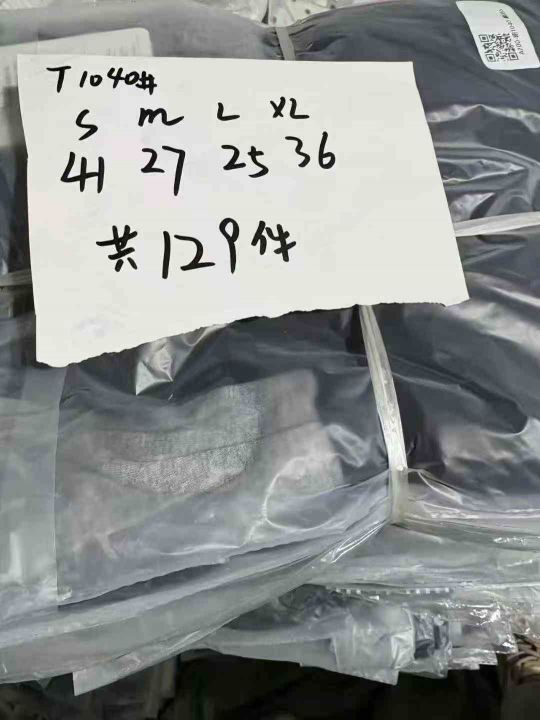 T1040#
S M L XL
41 27 25 36
共129件